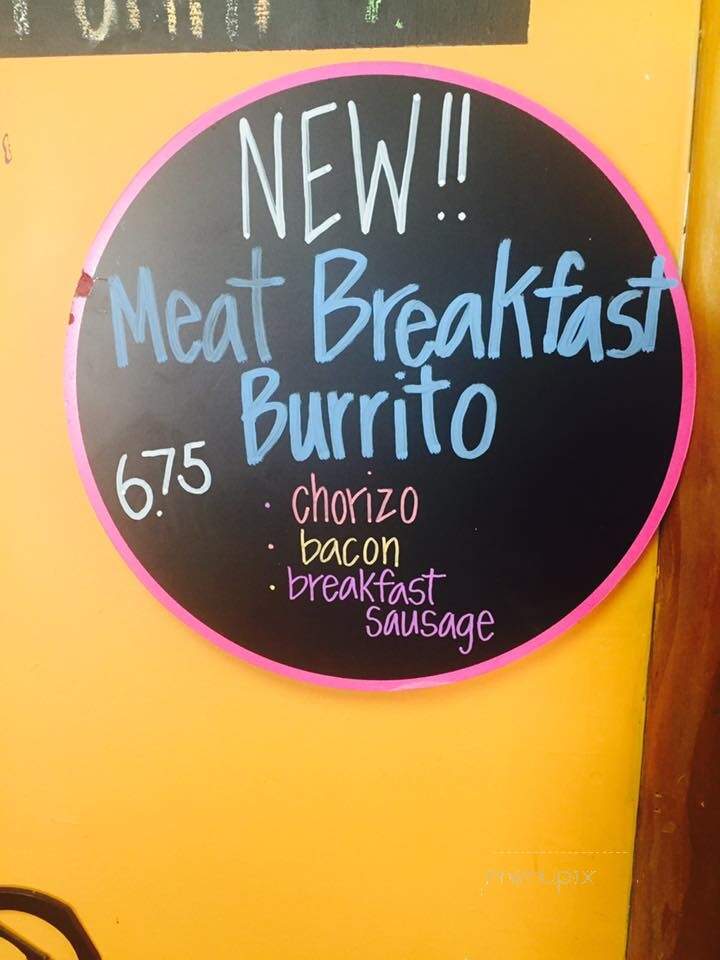 NEW!!
Meat Breakfast
Burrito
6.75
· chorizo
· bacon
· breakfast
sausage
menupix